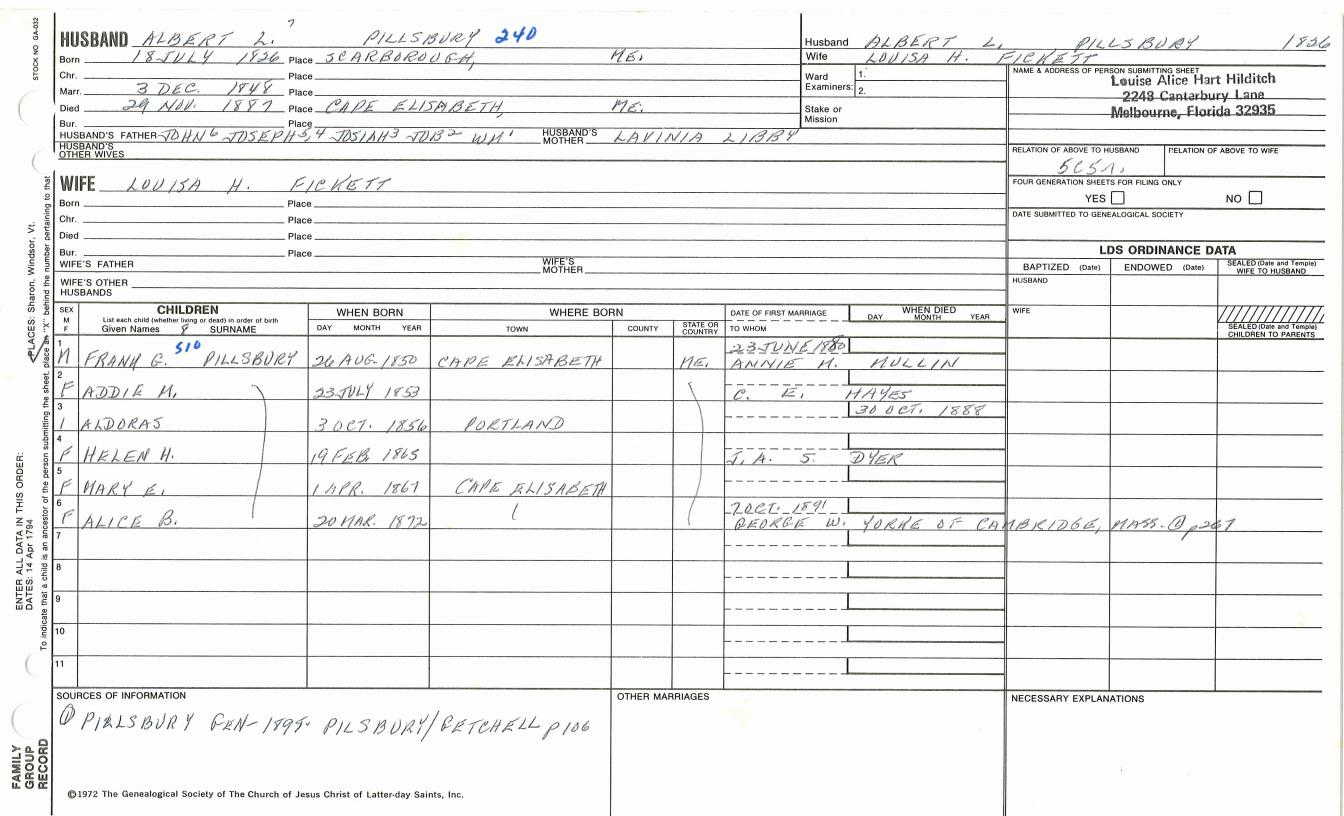 STOCK NO GA-032
7
HUSBAND ALBERT L. PILLSBURY 240
Born 18 JULY 1826 Place SCARBOROUGH, ME.
Chr. Place
Marr. 3 DEC. 1848 Place
Died 29 NOV. 1887 Place CAPE ELISABETH, ME.
Bur. Place
HUSBAND'S FATHER JOHN6 JOSEPH5,4 JOSIAH3 JOB2 WM1 HUSBAND'S MOTHER LAVINIA LIBBY
HUSBAND'S OTHER WIVES
Husband ALBERT L. PILLSBURY 1826
Wife LOUISA H. FICKETT
Ward Examiners: 1.
2.
Stake or Mission
NAME & ADDRESS OF PERSON SUBMITTING SHEET
Louise Alice Hart Hilditch
2248 Canterbury Lane
Melbourne, Florida 32935
RELATION OF ABOVE TO HUSBAND RELATION OF ABOVE TO WIFE
FOUR GENERATION SHEETS FOR FILING ONLY
YES NO
DATE SUBMITTED TO GENEALOGICAL SOCIETY
WIFE LOUISA H. FICKETT
Born Place
Chr. Place
Died Place
Bur. Place
WIFE'S FATHER WIFE'S MOTHER
WIFE'S OTHER HUSBANDS
LDS ORDINANCE DATA
BAPTIZED (Date) ENDOWED (Date) SEALED (Date and Temple) WIFE TO HUSBAND
HUSBAND
WIFE
SEALED (Date and Temple) CHILDREN TO PARENTS
SEX M F CHILDREN WHEN BORN WHERE BORN DATE OF FIRST MARRIAGE WHEN DIED
List each child (whether living or dead) in order of birth
Given Names 8 SURNAME DAY MONTH YEAR TOWN COUNTY STATE OR COUNTRY TO WHOM DAY MONTH YEAR
510
1 23 JUNE 1880
M FRANK G. PILLSBURY 26 AUG. 1850 CAPE ELISABETH ME. ANNIE M. MULLIN
2
F ADDIE M. 23 JULY 1853 C. E. HAYES
3 30 OCT. 1888
1 ALDORAS 3 OCT. 1856 PORTLAND
4
F HELEN H. 19 FEB. 1865 J. A. S. DYER
5
F MARY E. 1 APR. 1867 CAPE ELISABETH
6 7 OCT. 1891
F ALICE B. 20 MAR. 1872 GEORGE W. YORKE OF CAMBRIDGE, MASS. ① p267
7
8
9
10
11
SOURCES OF INFORMATION
① PILLSBURY GEN- 1898- PILSBURY/GETCHELL p 106
OTHER MARRIAGES
NECESSARY EXPLANATIONS
©1972 The Genealogical Society of The Church of Jesus Christ of Latter-day Saints, Inc.
ENTER ALL DATA IN THIS ORDER:
DATES: 14 Apr 1794
PLACES: Sharon, Windsor, Vt.
To indicate that a child is an ancestor of the person submitting the sheet, place an "X" behind the number pertaining to that
FAMILY
GROUP
RECORD